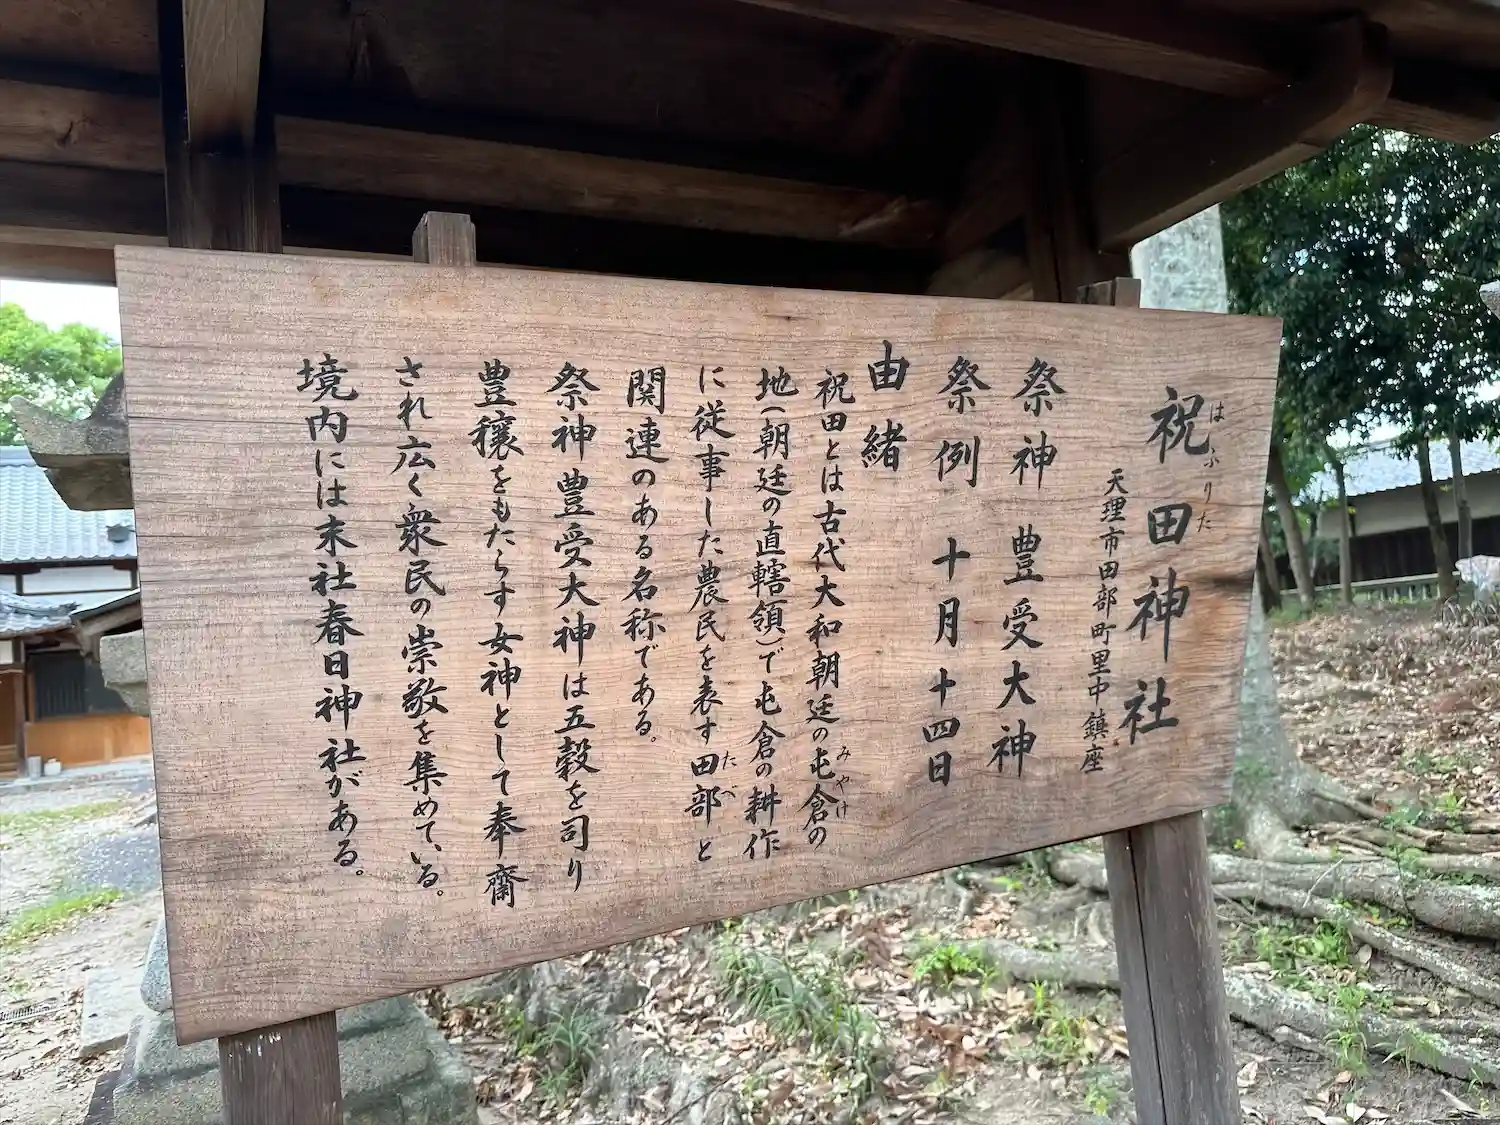 祝田神社
はふりた
天理市田部町里中鎮座
祭神 豊受大神
祭例 十月十四日
由緒
祝田とは古代大和朝廷の屯倉の
みやけ
地(朝廷の直轄領)で屯倉の耕作
に従事した農民を表す田部と
たべ
関連のある名称である。
祭神豊受大神は五穀を司り
豊穣をもたらす女神として奉齋
され広く衆民の崇敬を集めている。
境内には末社春日神社がある。